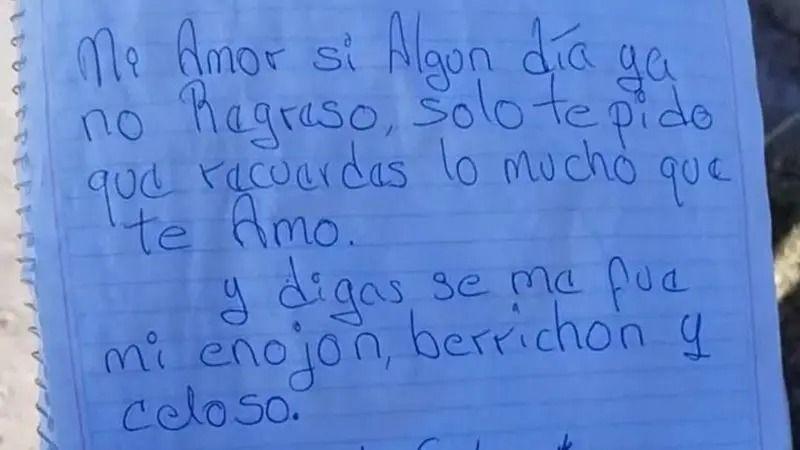 Mi Amor si Algon día ya
no Ragraso, solo te pido
qua racuardas lo mucho qua
te Amo.
y digas se ma fua
mi enojon, berrichon y
celoso.